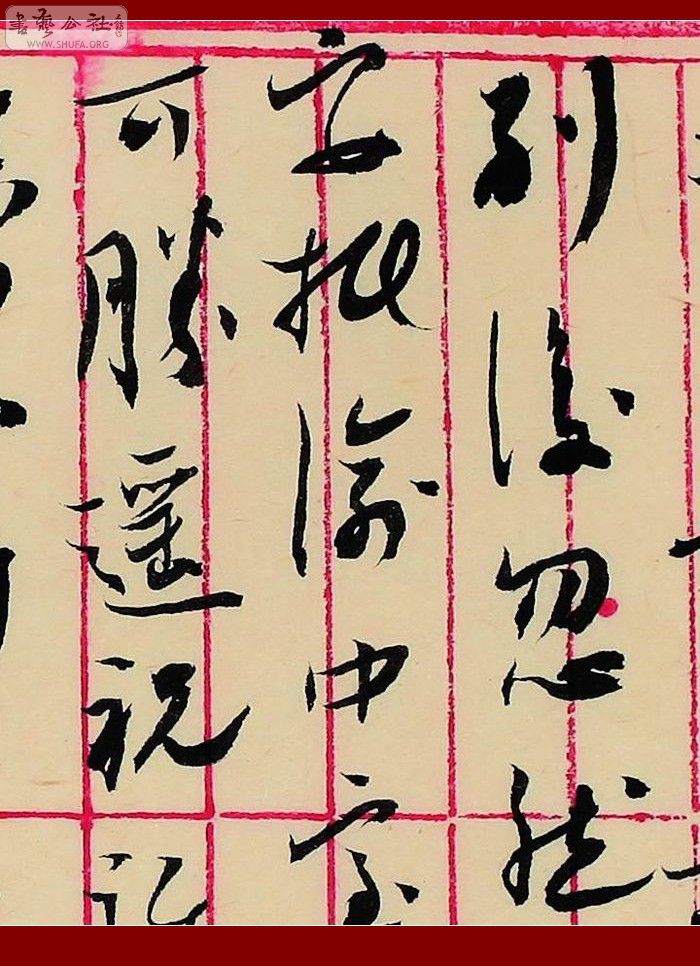 書藝公社
WWW.SHUFA.ORG
别後忽然
安抵渝中
可勝遥祝